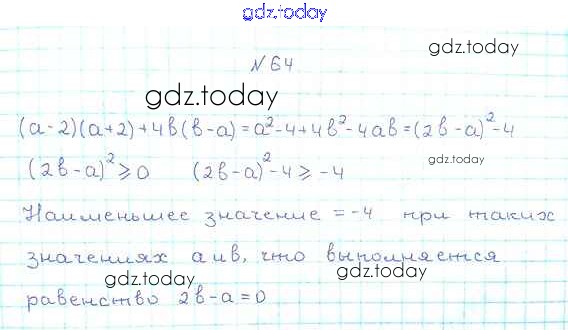 gdz.today
gdz.today
N 64
gdz.today
(a-2)(a+2)+4в(в-a)=a²-4+4в²-4aв=(2в-a)²-4
(2в-a)²≥0 (2в-a)²-4≥-4
gdz.today
Наименьшее значение =-4 при таких
значениях a и в, что выполняется
gdz.today
gdz.today
равенство 2в-a=0